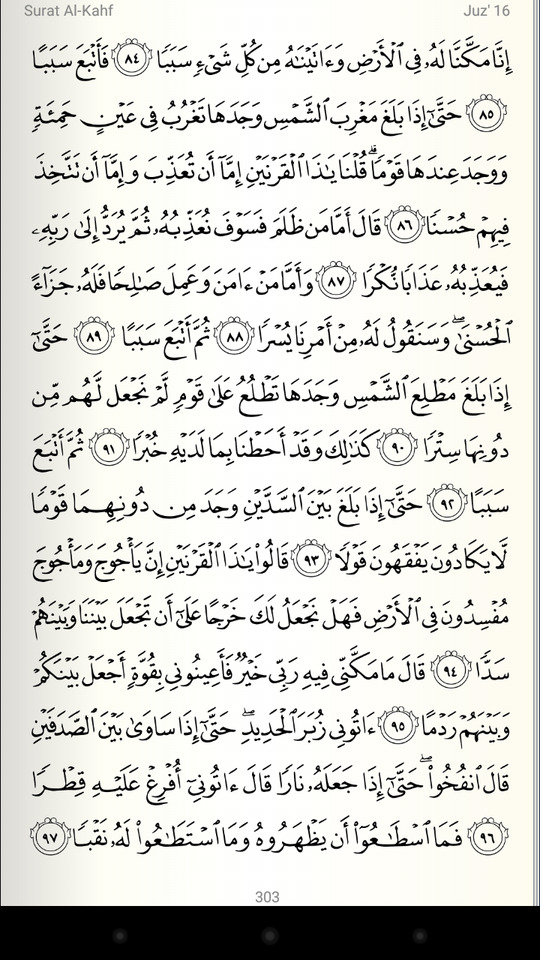 Surat Al-Kahf Juz' 16
إِنَّا مَكَّنَّا لَهُۥ فِى ٱلْأَرْضِ وَءَاتَيْنَـٰهُ مِن كُلِّ شَىْءٍ سَبَبًا ٨٤ فَأَتْبَعَ سَبَبًا
٨٥ حَتَّىٰٓ إِذَا بَلَغَ مَغْرِبَ ٱلشَّمْسِ وَجَدَهَا تَغْرُبُ فِى عَيْنٍ حَمِئَةٍ
وَوَجَدَ عِندَهَا قَوْمًا ۗ قُلْنَا يَـٰذَا ٱلْقَرْنَيْنِ إِمَّآ أَن تُعَذِّبَ وَإِمَّآ أَن تَتَّخِذَ
فِيهِمْ حُسْنًا ٨٦ قَالَ أَمَّا مَن ظَلَمَ فَسَوْفَ نُعَذِّبُهُۥ ثُمَّ يُرَدُّ إِلَىٰ رَبِّهِۦ
فَيُعَذِّبُهُۥ عَذَابًا نُّكْرًا ٨٧ وَأَمَّا مَنْ ءَامَنَ وَعَمِلَ صَـٰلِحًا فَلَهُۥ جَزَآءً
ٱلْحُسْنَىٰ ۖ وَسَنَقُولُ لَهُۥ مِنْ أَمْرِنَا يُسْرًا ٨٨ ثُمَّ أَتْبَعَ سَبَبًا ٨٩ حَتَّىٰٓ
إِذَا بَلَغَ مَطْلِعَ ٱلشَّمْسِ وَجَدَهَا تَطْلُعُ عَلَىٰ قَوْمٍ لَّمْ نَجْعَل لَّهُم مِّن
دُونِهَا سِتْرًا ٩٠ كَذَٰلِكَ وَقَدْ أَحَطْنَا بِمَا لَدَيْهِ خُبْرًا ٩١ ثُمَّ أَتْبَعَ
سَبَبًا ٩٢ حَتَّىٰٓ إِذَا بَلَغَ بَيْنَ ٱلسَّدَّيْنِ وَجَدَ مِن دُونِهِمَا قَوْمًا
لَّا يَكَادُونَ يَفْقَهُونَ قَوْلًا ٩٣ قَالُوا۟ يَـٰذَا ٱلْقَرْنَيْنِ إِنَّ يَأْجُوجَ وَمَأْجُوجَ
مُفْسِدُونَ فِى ٱلْأَرْضِ فَهَلْ نَجْعَلُ لَكَ خَرْجًا عَلَىٰٓ أَن تَجْعَلَ بَيْنَنَا وَبَيْنَهُمْ
سَدًّا ٩٤ قَالَ مَا مَكَّنِّى فِيهِ رَبِّى خَيْرٌ فَأَعِينُونِى بِقُوَّةٍ أَجْعَلْ بَيْنَكُمْ
وَبَيْنَهُمْ رَدْمًا ٩٥ ءَاتُونِى زُبَرَ ٱلْحَدِيدِ ۖ حَتَّىٰٓ إِذَا سَاوَىٰ بَيْنَ ٱلصَّدَفَيْنِ
قَالَ ٱنفُخُوا۟ ۖ حَتَّىٰٓ إِذَا جَعَلَهُۥ نَارًا قَالَ ءَاتُونِىٓ أُفْرِغْ عَلَيْهِ قِطْرًا
٩٦ فَمَا ٱسْطَـٰعُوٓا۟ أَن يَظْهَرُوهُ وَمَا ٱسْتَطَـٰعُوا۟ لَهُۥ نَقْبًا ٩٧
303